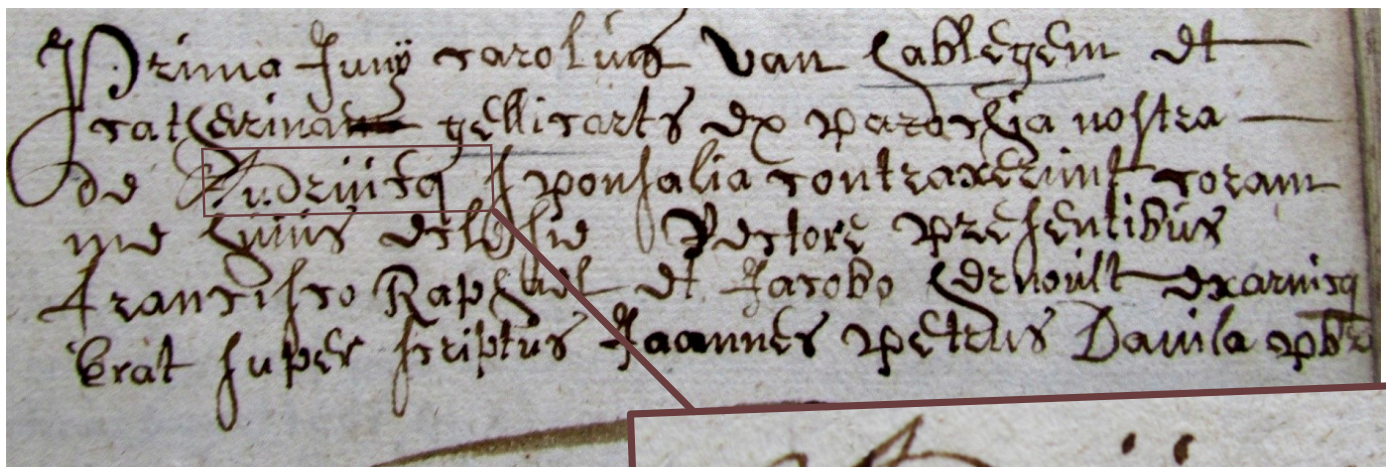 Prima Junij carolus van cablegem et
catharina gellicarts ex parochia nostra
de Andruicq sponsalia contraxerunt coram
me huius eclesie Rectore presentibus
francisco Raphael et Jacobo hernoult
erat super scriptus Joannes petrus Dauila pbr